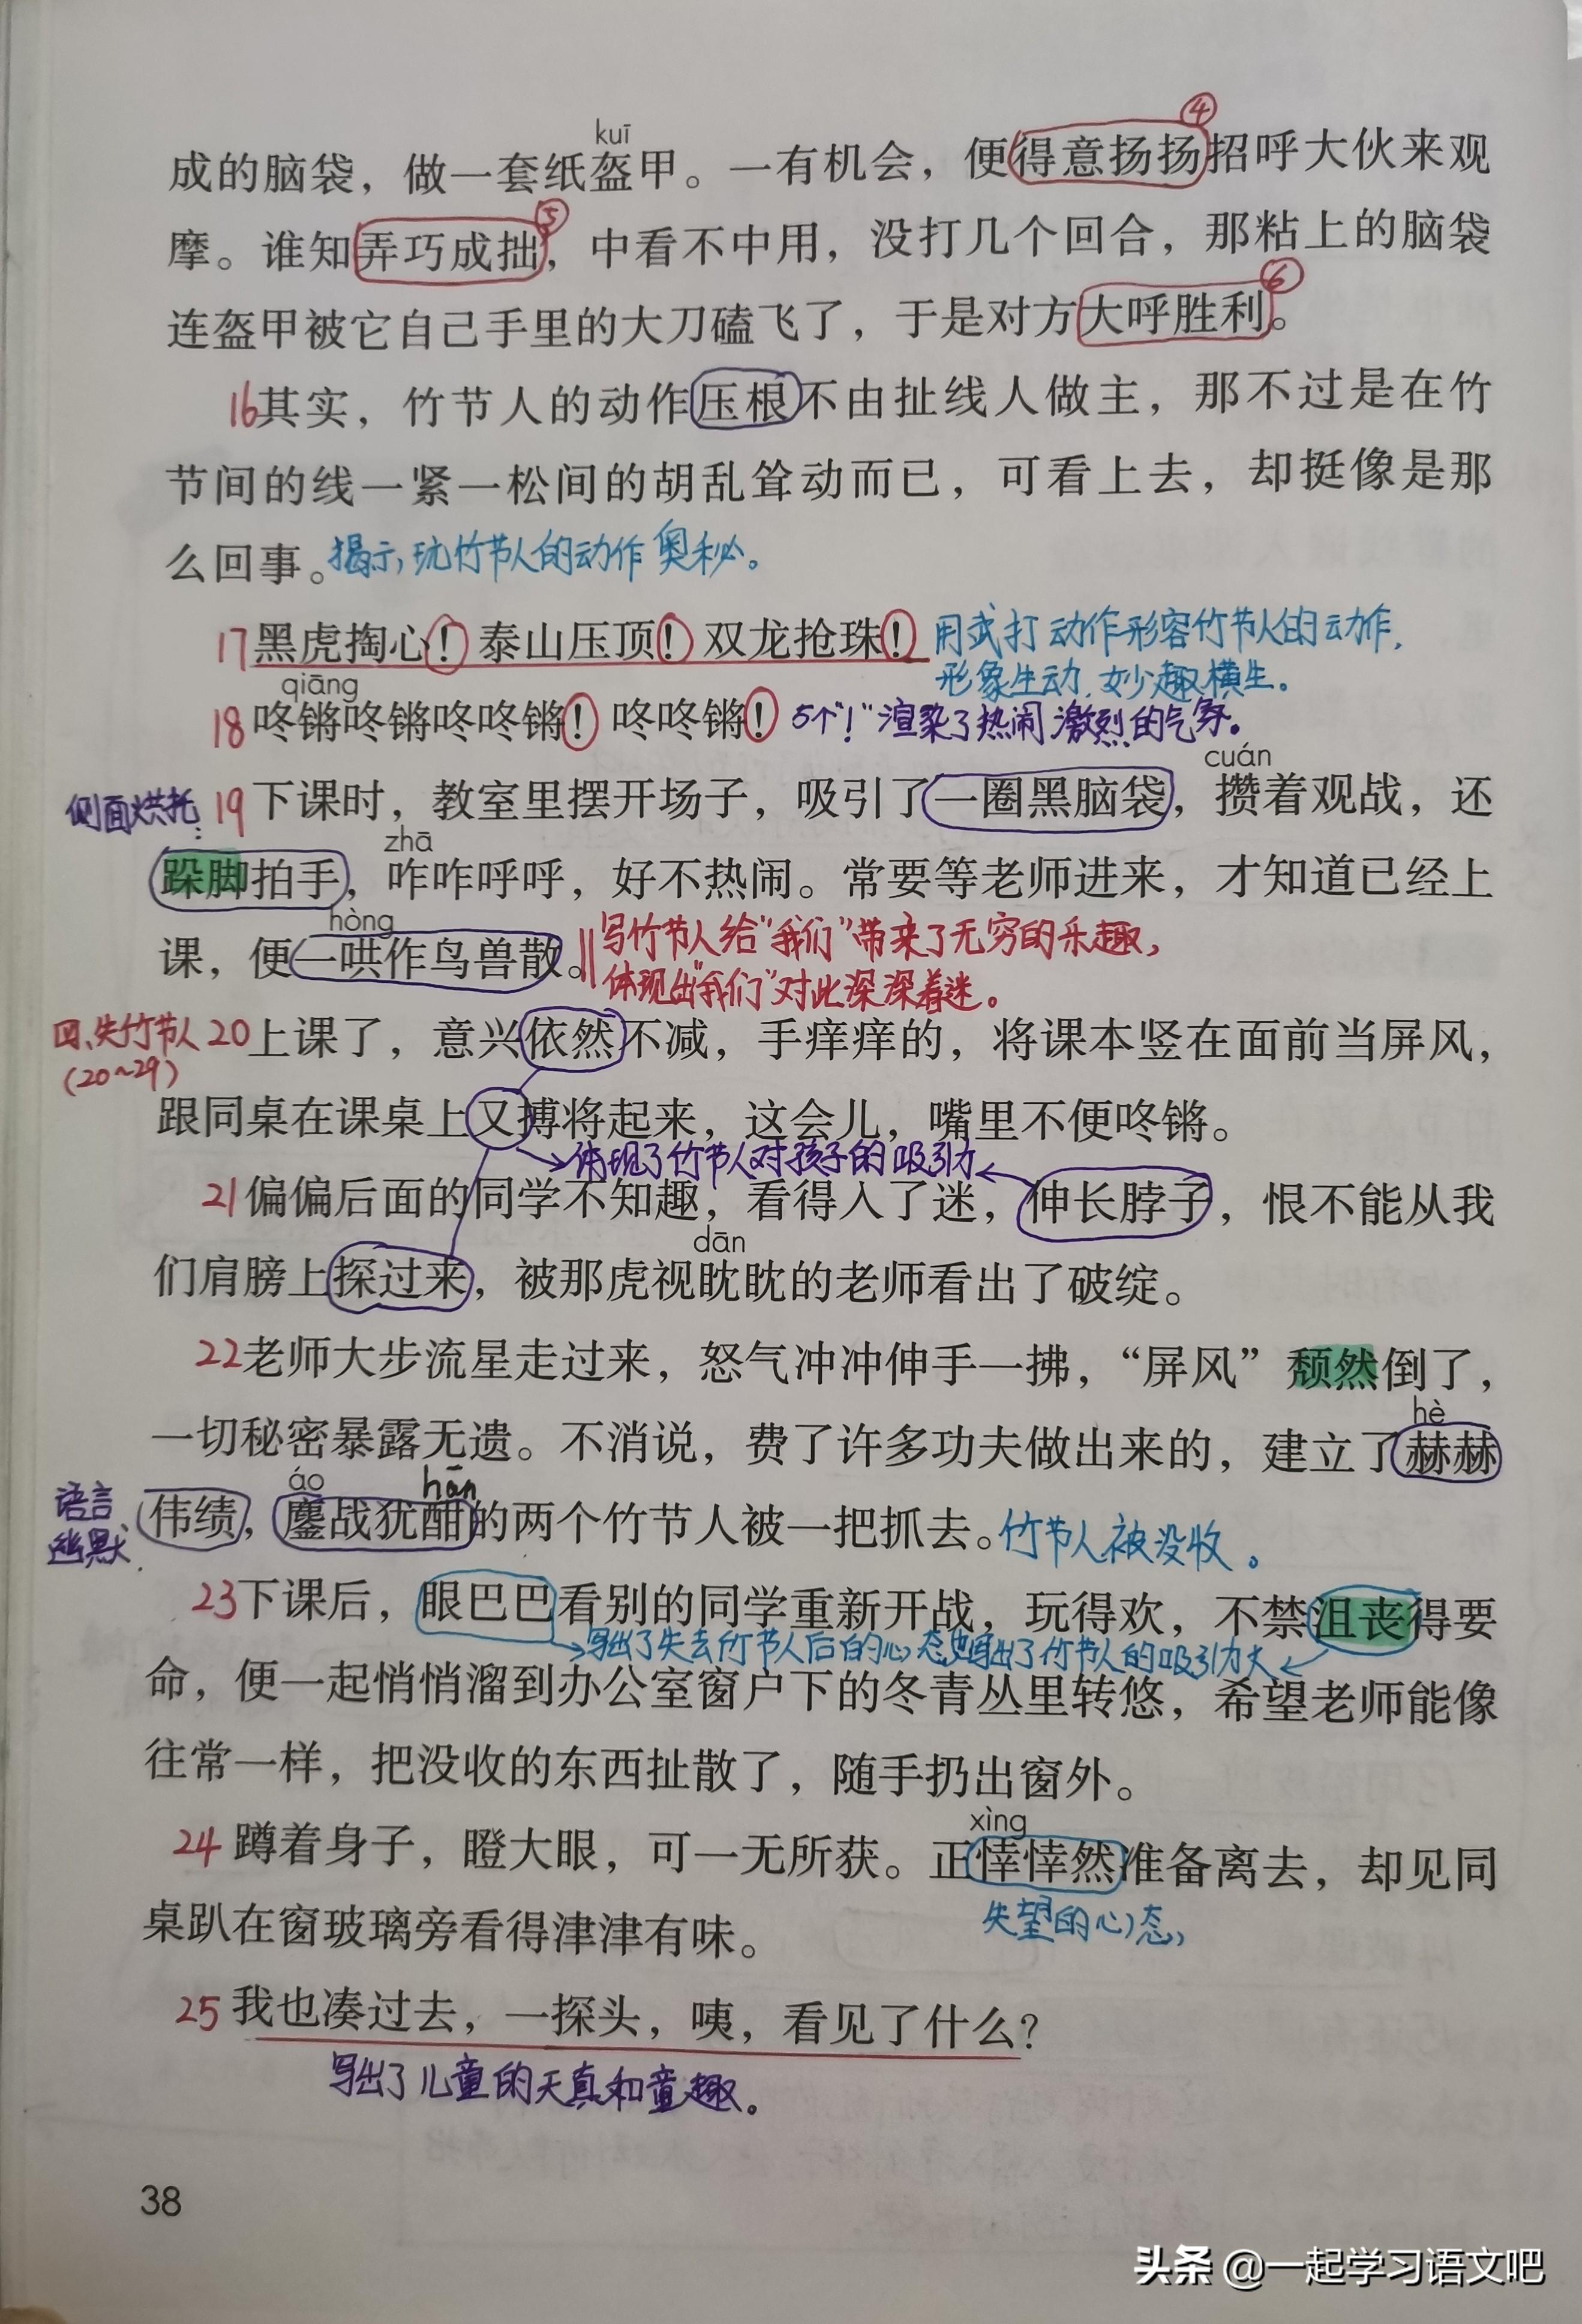 kuī ④
成的脑袋，做一套纸盔甲。一有机会，便得意扬扬招呼大伙来观
⑤
摩。谁知弄巧成拙，中看不中用，没打几个回合，那粘上的脑袋
⑥
连盔甲被它自己手里的大刀磕飞了，于是对方大呼胜利。
16其实，竹节人的动作压根不由扯线人做主，那不过是在竹
节间的线一紧一松间的胡乱耸动而已，可看上去，却挺像是那
么回事。揭示，玩竹节人的动作奥秘。
17黑虎掏心！泰山压顶！双龙抢珠！用武打动作形容竹节人的动作，
形象生动，妙趣横生。
qiāng
18咚锵咚锵咚咚锵！咚咚锵！5个“！”渲染了热闹激烈的气氛。
cuán
侧面烘托：19下课时，教室里摆开场子，吸引了一圈黑脑袋，攒着观战，还
zhā
跺脚拍手，咋咋呼呼，好不热闹。常要等老师进来，才知道已经上
hòng
课，便一哄作鸟兽散。‖写竹节人给“我们”带来了无穷的乐趣，
体现出“我们”对此深深着迷。
四、失竹节人 20上课了，意兴依然不减，手痒痒的，将课本竖在面前当屏风，
(20~29)
跟同桌在课桌上又搏将起来，这会儿，嘴里不便咚锵。
体现了竹节人对孩子的吸引力
21偏偏后面的同学不知趣，看得入了迷，伸长脖子，恨不能从我
dān
们肩膀上探过来，被那虎视眈眈的老师看出了破绽。
22老师大步流星走过来，怒气冲冲伸手一拂，“屏风”颓然倒了，
hè
一切秘密暴露无遗。不消说，费了许多功夫做出来的，建立了赫赫
áo hān
语言、幽默.
伟绩，鏖战犹酣的两个竹节人被一把抓去。竹节人被没收。
23下课后，眼巴巴看别的同学重新开战，玩得欢，不禁沮丧得要
写出了失去竹节人后的心态，写出了竹节人的吸引力大
命，便一起悄悄溜到办公室窗户下的冬青丛里转悠，希望老师能像
往常一样，把没收的东西扯散了，随手扔出窗外。
xìng
24蹲着身子，瞪大眼，可一无所获。正悻悻然准备离去，却见同
失望的心态，
桌趴在窗玻璃旁看得津津有味。
25我也凑过去，一探头，咦，看见了什么？
写出了儿童的天真和童趣。
38
头条 @一起学习语文吧